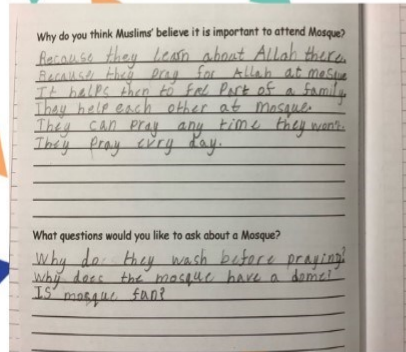 Why do you think Muslims' believe it is important to attend Mosque?
Because they learn about Allah there.
Because they pray for Allah at mosque
It helps them to feel Part of a family.
They help each other at mosque.
They can pray any time they want.
They Pray evry day.
What questions would you like to ask about a Mosque?
Why do they wash before praying?
Why does the mosque have a dome?
IS mosque fun?